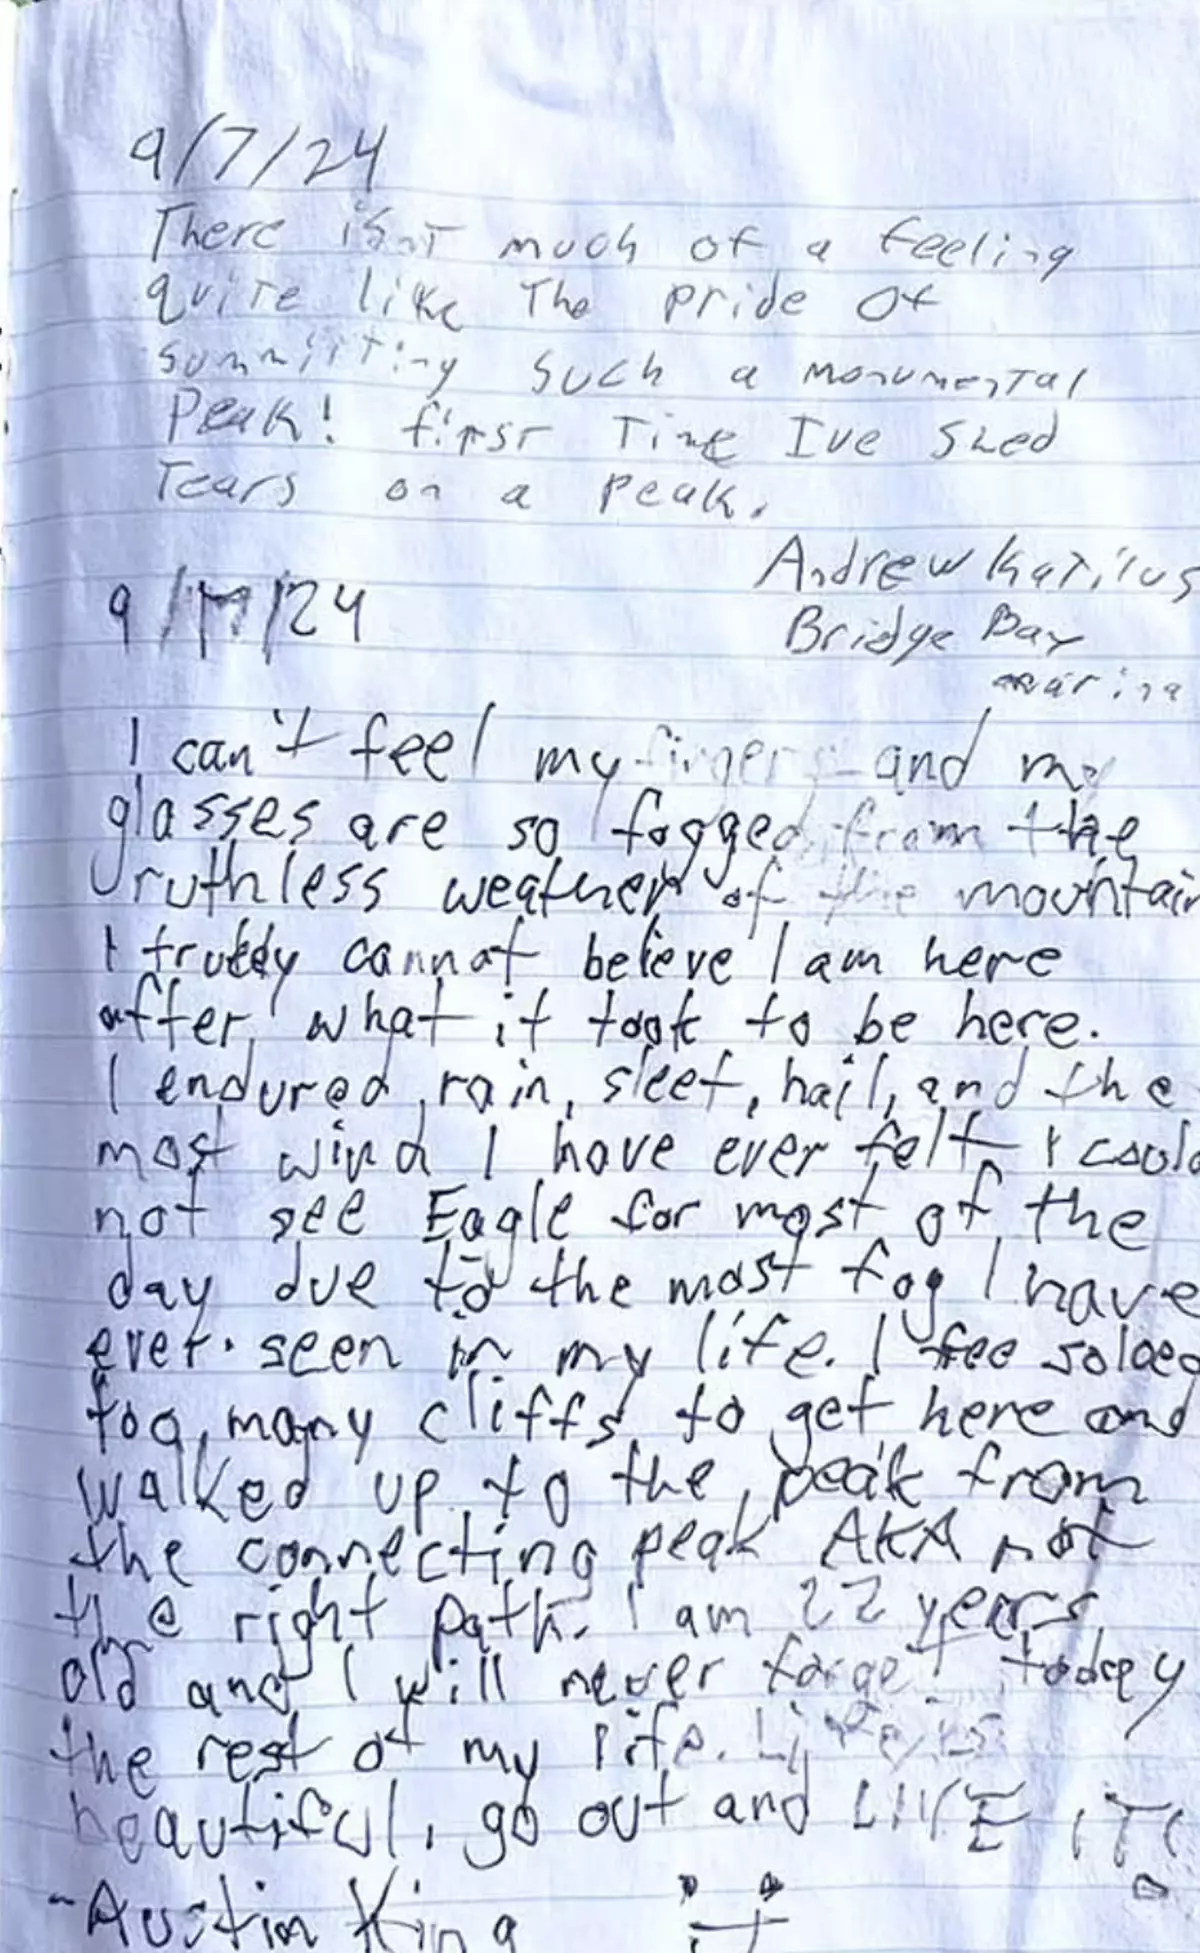 9/7/24
There isnt much of a feeling
quite like The pride of
summitting such a monumental
Peak! first Time Ive shed
Tears on a peak.
Andrew
Bridge Bay
marina
9/17/24
I can't feel my fingers and my
glasses are so fogged from the
ruthless weather of the mountain
I truly cannot believe I am here
after what it took to be here.
I endured rain, sleet, hail, and the
most wind I have ever felt. I could
not see Eagle for most of the
day due to the most fog I have
ever seen in my life. I free soloed
too many cliffs to get here and
walked up to the peak from
the connecting peak AKA not
the right path. I am 22 years
old and I will never forget today
the rest of my life. Life is
beautiful, go out and LIVE IT
-Austin King